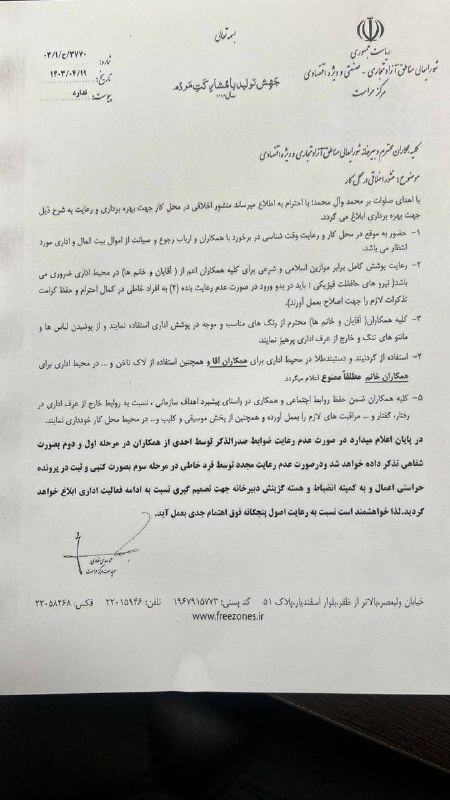 بسمه تعالی
ریاست جمهوری
شورایعالی مناطق آزاد تجاری - صنعتی و ویژه اقتصادی
مرکز حراست
جهش تولید با مشارکت مردم
شماره: ۰۳/۱/ح/۳۷۷۰
تاریخ: ۱۴۰۳/۰۴/۱۹
پیوست: ندارد
کلیه همکاران محترم دبیرخانه شورایعالی مناطق آزاد تجاری و ویژه اقتصادی
موضوع: منشور اخلاقی در محل کار
با اهدای صلوات بر محمد وآل محمد؛ با احترام به اطلاع میرساند منشور اخلاقی در محل کار جهت بهره برداری و رعایت به شرح ذیل
جهت بهره برداری ابلاغ می گردد.
۱- حضور به موقع در محل کار و رعایت وقت شناسی در برخورد با همکاران و ارباب رجوع و صیانت از اموال بیت المال و اداری مورد
انتظار می باشد.
۲- رعایت پوشش کامل برابر موازین اسلامی و شرعی برای کلیه همکاران اعم از ( آقایان و خانم ها) در محیط اداری ضروری می
باشد( نیرو های حافظت فیزیکی ؛ باید در بدو ورود در صورت عدم رعایت بنده (۲) به افراد خاطی در کمال احترام و حفظ کرامت
تذکرات لازم را جهت اصلاح بعمل آورند).
۳- کلیه همکاران( آقایان و خانم ها) محترم از رنگ های مناسب و موجه در پوشش اداری استفاده نمایند و از پوشیدن لباس ها و
مانتو های تنگ و خارج از عرف اداری پرهیز نمایند.
۴- استفاده از گردنبند و دستبندطلا در محیط اداری برای همکاران آقا و همچنین استفاده از لاک ناخن و ... در محیط اداری برای
همکاران خانم مطلقاً ممنوع اعلام میگردد.
۵- کلیه همکاران ضمن حفظ روابط اجتماعی و همکاری در راستای پیشبرد اهداف سازمانی ، نسبت به روابط خارج از عرف اداری در
رفتار، گفتار و... مراقبت های لازم را بعمل آورده و همچنین از پخش موسیقی و کلیپ و... در محیط محل کار خودداری نمایند.
در پایان اعلام میدارد در صورت عدم رعایت ضوابط صدرالذکر توسط احدی از همکاران در مرحله اول و دوم بصورت
شفاهی تذکر داده خواهد شد ودرصورت عدم رعایت مجدد توسط فرد خاطی در مرحله سوم بصورت کتبی و ثبت در پرونده
حراستی اعمال و به کمیته انضباط و هسته گزینش دبیرخانه جهت تصمیم گیری نسبت به ادامه فعالیت اداری ابلاغ خواهد
گردید. لذا خواهشمند است نسبت به رعایت اصول پنجگانه فوق اهتمام جدی بعمل آید.
خیابان ولیعصر،بالاتر از ظفر،بلوار اسفندیار،پلاک ۵۱ کد پستی: ۱۹۶۷۹۱۵۷۷۳ تلفن: ۲۲۰۱۵۹۴۶ فکس: ۲۲۰۵۸۲۶۸
www.freezones.ir